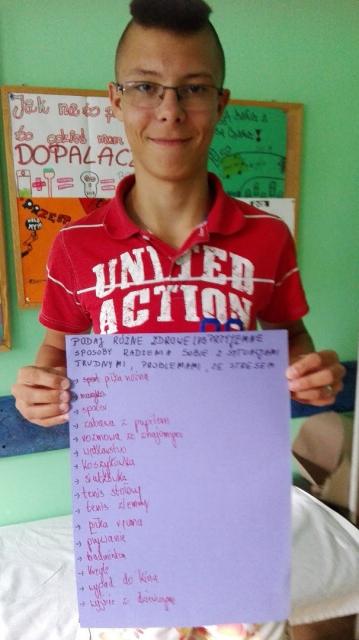 Jak
na
to
DOPALAC
UNITED
ACTION
PODAJ RÓŻNE ZDROWE I
SPOSOBY RADZENIA SOBIE Z SYTUACJAMI
TRUDNYMI, PROBLEMAMI, ZE STRESEM
→ sport piłka nożna
→ muzyka
→ spacer
→ zabawa z pupilem
→ rozmowa ze znajomym
→ wędkarstwo
→ koszykówka
→ siatkówka
→ tenis stołowy
→ tenis ziemny
→ piłka ręczna
→ pływanie
→ badminton
→ kręgle
→ wypad do kina
→ wyjście z dziewczyną